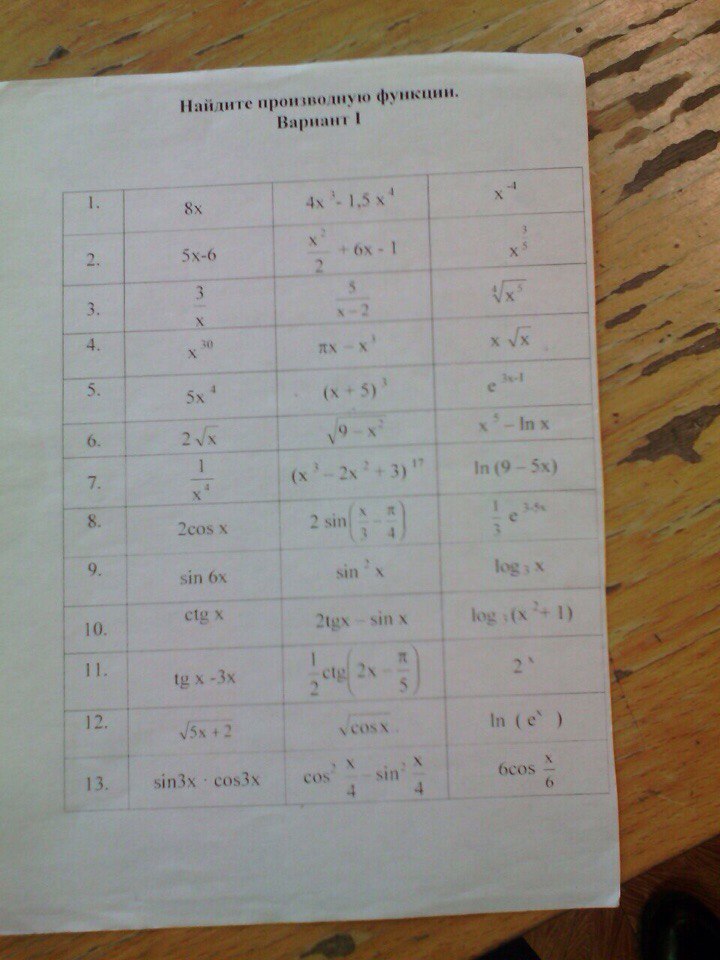 Найдите производную функции.
Вариант I
1. 8x 4x³- 1,5 x⁴ x⁻⁴
2. 5x-6 x²/2 + 6x - 1 x^(3/5)
3. 3/x 5/(x – 2) ⁴√x⁵
4. x³⁰ πx – x³ x √x
5. 5x⁴ (x + 5)³ e^(3x-1)
6. 2 √x √(9 – x²) x⁵ – ln x
7. 1/x⁴ (x³ – 2x² + 3)¹⁷ ln (9 – 5x)
8. 2cos x 2 sin(x/3 – π/4) 1/3 e^(3-5x)
9. sin 6x sin² x log₃ x
10. ctg x 2tgx – sin x log₃ (x²+ 1)
11. tg x -3x 1/2 ctg(2x – π/5) 2ˣ
12. √(5x + 2) √(cos x) ln ( eˣ )
13. sin3x · cos3x cos² x/4 – sin² x/4 6cos x/6